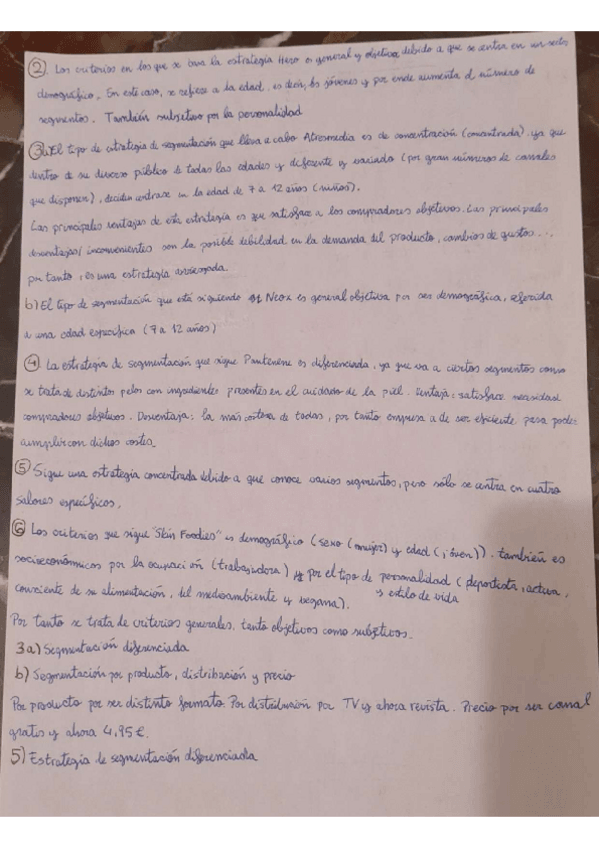 ② Los criterios en los que se basa la estrategia Hero es general y objetiva debido a que se centra en un sector
demográfico. En este caso, se refiere a la edad, es decir, los jóvenes y por ende aumenta el número de
segmentos. También subjetivo por la personalidad
③a) El tipo de estrategia de segmentación que lleva a cabo Atresmedia es de concentración (concentrada), ya que
dentro de su diverso público de todas las edades y diferente y variado (por gran números de canales
que disponen), deciden centrarse en la edad de 7 a 12 años (niños).
Las principales ventajas de esta estrategia es que satisface a los compradores objetivos. Las principales
desventajas/inconvenientes son la posible debilidad en la demanda del producto, cambios de gustos...,
por tanto, es una estrategia arriesgada.
b) El tipo de segmentación que está siguiendo Neox es general objetiva por ser demográfica, referida
a una edad específica (7 a 12 años)
④ La estrategia de segmentación que sigue Pantenene es diferenciada, ya que va a ciertos segmentos como
se trata de distintos pelos con ingredientes presentes en el cuidado de la piel. Ventaja: satisface necesidad
compradores objetivos. Desventaja: la más costosa de todas, por tanto empresa a de ser eficiente para poder
cumplir con dichos costes.
⑤ Sigue una estrategia concentrada debido a que conoce varios segmentos, pero sólo se centra en cuatro
sabores específicos.
⑥ Los criterios que sigue "Skin Foodies" es demográfico (sexo (mujer) y edad (joven)). también es
socioeconómicos por la ocupación (trabajadora) y por el tipo de personalidad (deportista, activa,
y estilo de vida
consciente de su alimentación, del medioambiente y vegana).
Por tanto se trata de criterios generales, tanto objetivos como subjetivos.
3a) Segmentación diferenciada
b) Segmentación por producto, distribución y precio
Por producto por ser distinto formato. Por distribución por TV y ahora revista. Precio por ser canal
gratis y ahora 4,95€.
5) Estrategia de segmentación diferenciada